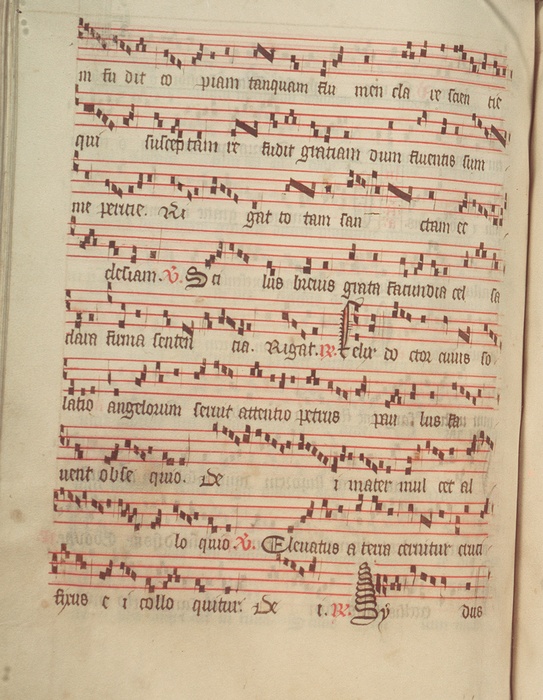 in fu dit co piam tanquam flu men cla re scien tie
qui suscep tam re fudit gratiam dum fluentis sum
me petitie. Ri gat to tam san ctam ec
clesiam. V. Sti lus brevis grata facundia cel sa
clara firma senten cia. Rigat. R. Felix do ctor cuius so
latio angelorum servit attentio petrus pau lus fa
vent obse quio. De i mater mul cet al
lo quio V. Elevatus a terra cernitur cruci
fixus e i collo quitur. De i. R. Sy dus